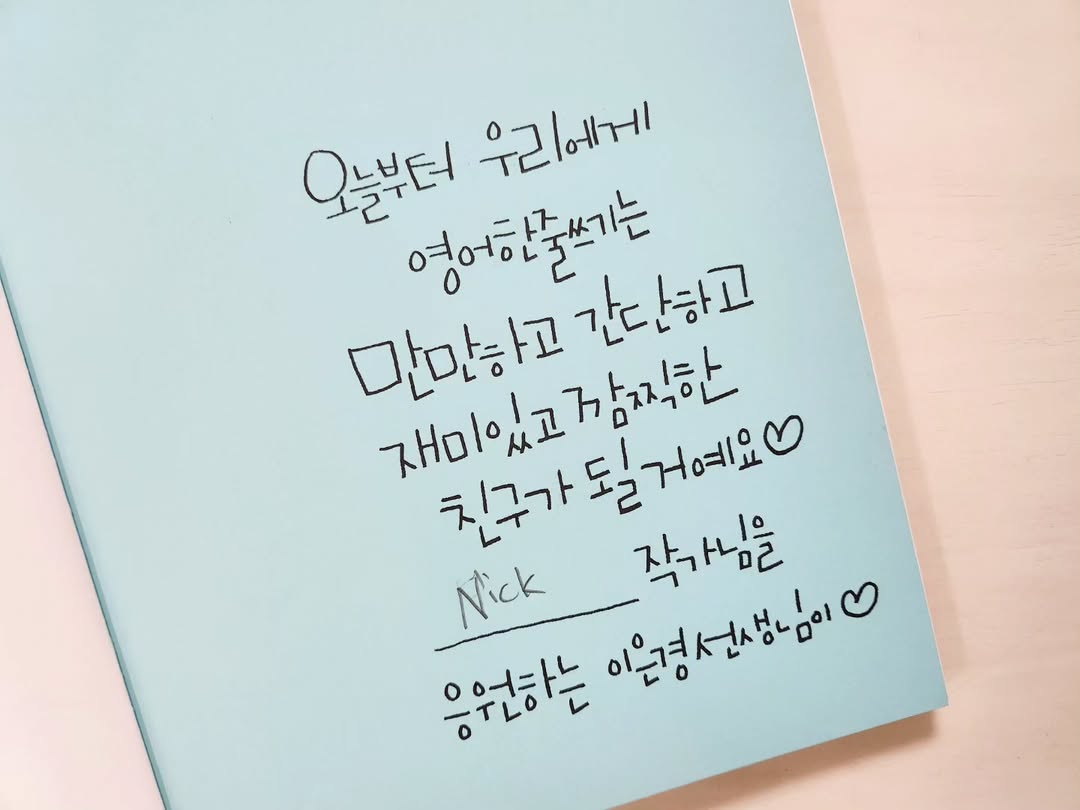 오늘부터 우리에게
영어한줄쓰기는
만만하고 간단하고
재미있고 깜찍한
친구가 될 거예요♡
Nick 작가님을
응원하는 이은경선생님이♡